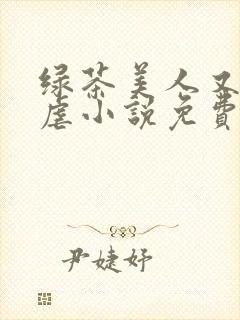 绿茶美人又
虐小説免費
尹婕妤